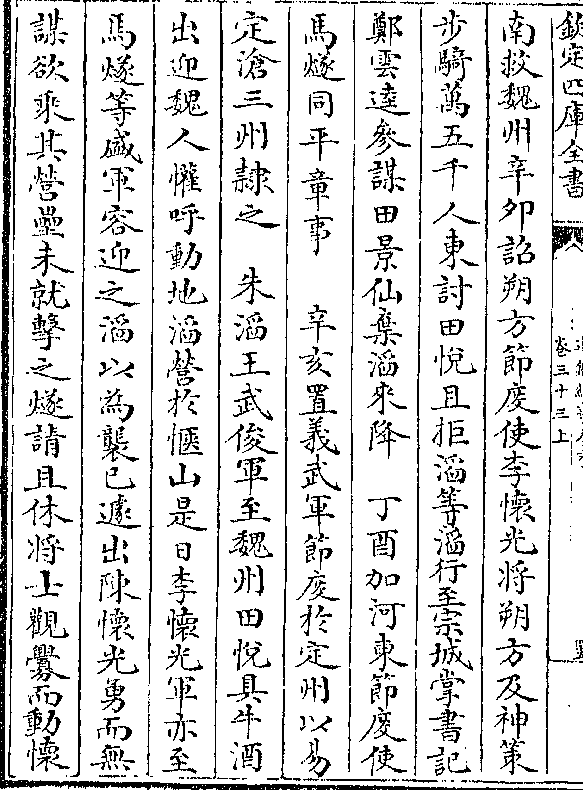 欽定四庫全書
卷三十三上
南救魏州辛卯詔朔方節度使李懷光將朔方及神策
步騎萬五千人東討田悅且拒滔等滔行至宗城掌書記
鄭雲逵參謀田景仙棄滔來降　丁酉加河東節度使
馬燧同平章事　辛亥置義武軍節度於定州以易
定滄三州隸之　朱滔王武俊軍至魏州田悅具牛酒
出迎魏人懽呼動地滔營於愜山是日李懷光軍亦至
馬燧等盛軍容迎之滔以為襲已遽出陳懷光勇而無
謀欲乘其營壘未就擊之燧請且休將士觀釁而動懷